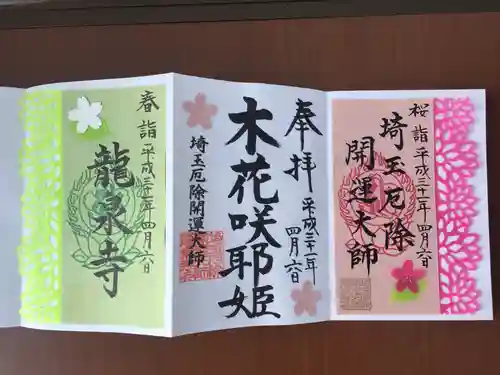 桜詣 平成三十一年四月六日
埼玉厄除
開運大師
奉拝 平成三十一年
四月六日
木花咲耶姫
埼玉厄除開運大師
春詣 平成三十一年四月六日
龍泉寺